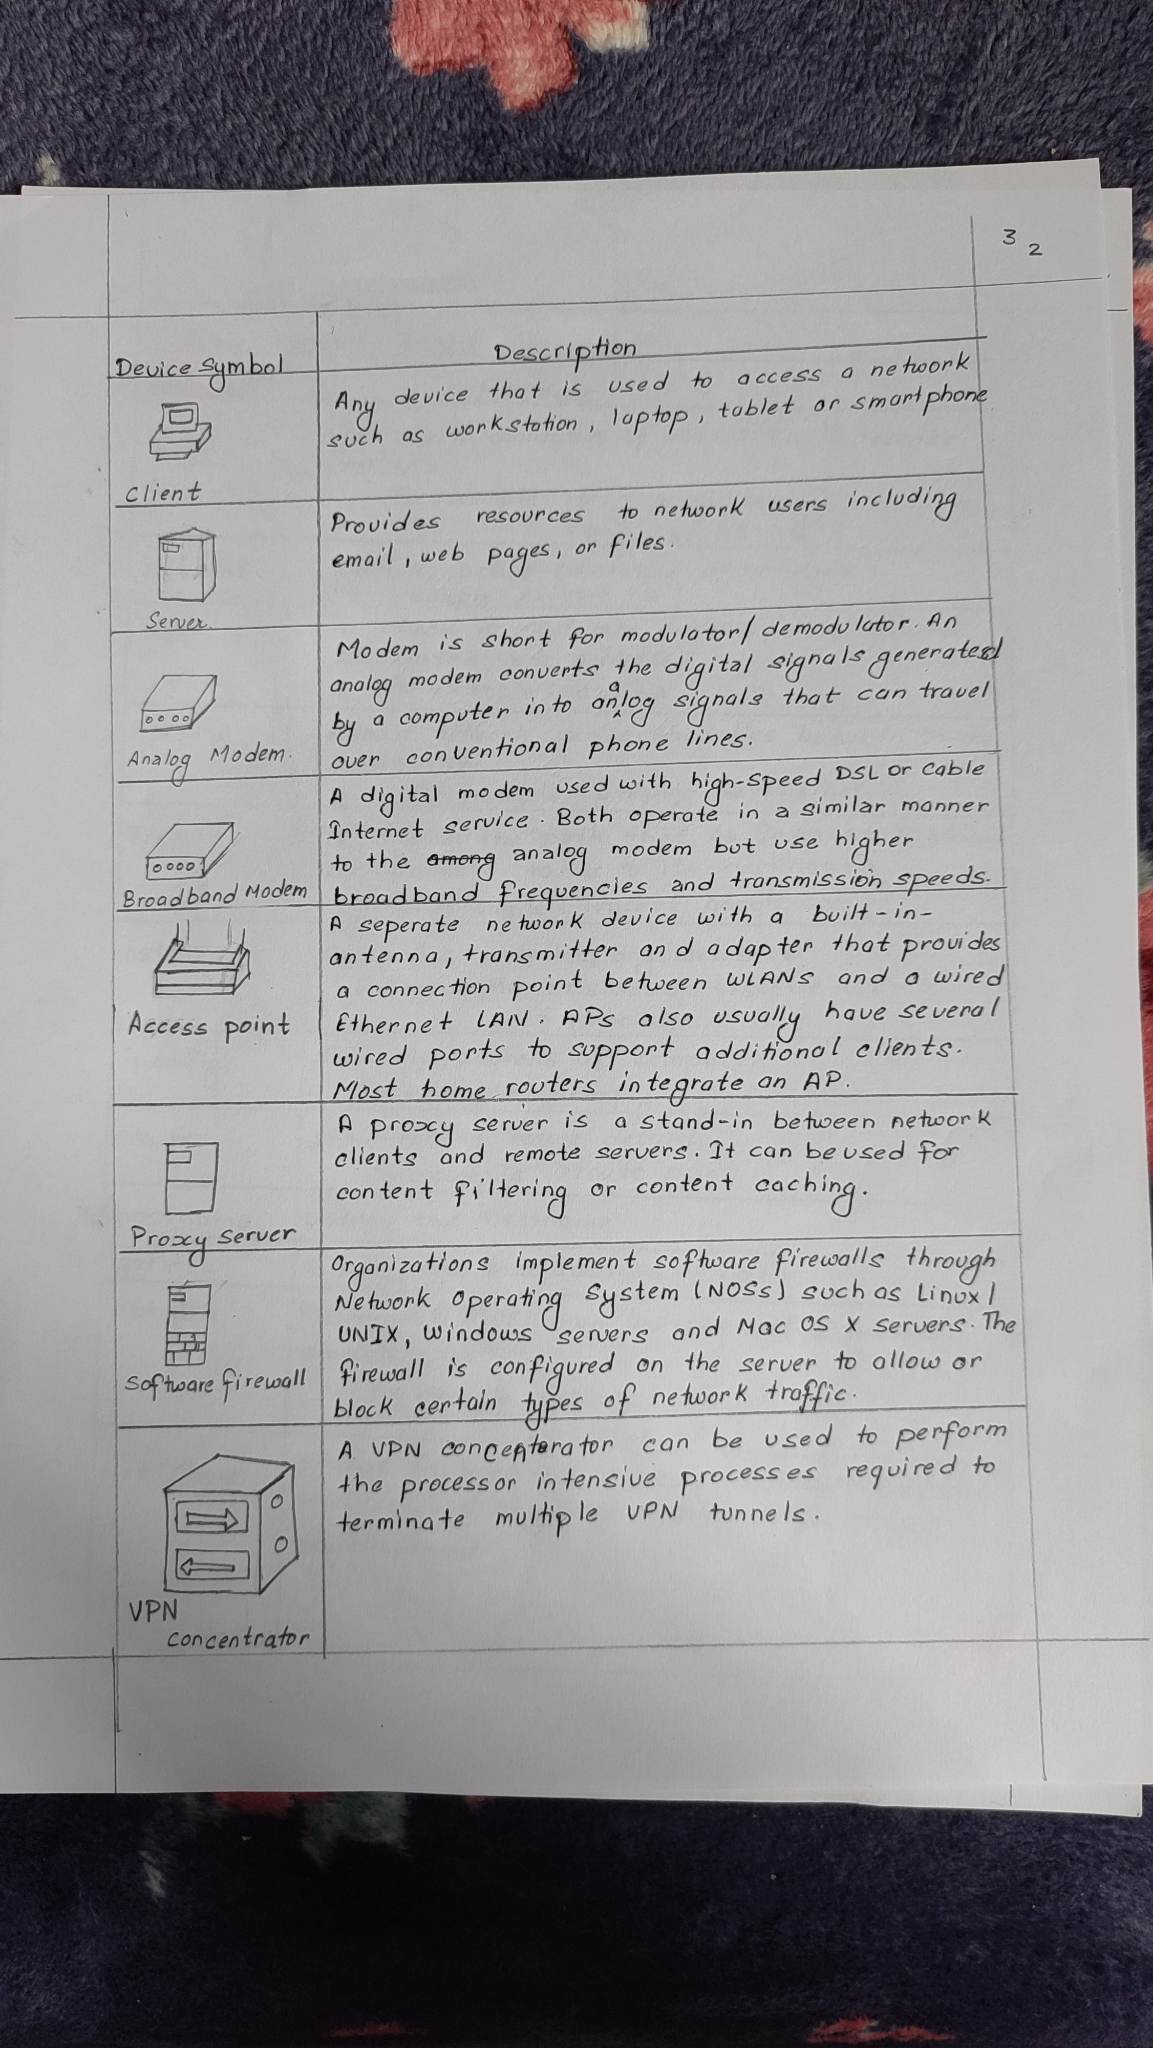 3 2
Device symbol
Description
Any device that is used to access a network
such as workstation, laptop, tablet or smartphone
Client
Provides resources to network users including
email, web pages, or files.
Server
Modem is short for modulator/demodulator. An
analog modem converts the digital signals generated
by a computer into analog signals that can travel
over conventional phone lines.
Analog Modem.
A digital modem used with high-speed DSL or cable
Internet service. Both operate in a similar manner
to the among analog modem but use higher
broadband frequencies and transmission speeds.
Broadband Modem
A seperate network device with a built-in-
antenna, transmitter and adapter that provides
a connection point between WLANs and a wired
Ethernet LAN. APs also usually have several
wired ports to support additional clients.
Most home routers integrate an AP.
Access point
A proxy server is a stand-in between network
clients and remote servers. It can be used for
content filtering or content caching.
Proxy server
Organizations implement software firewalls through
Network Operating System (NOSs) such as Linux/
UNIX, Windows servers and Mac OS X servers. The
firewall is configured on the server to allow or
block certain types of network traffic.
Software firewall
A VPN concenterator can be used to perform
the processor intensive processes required to
terminate multiple VPN tunnels.
VPN
concentrator